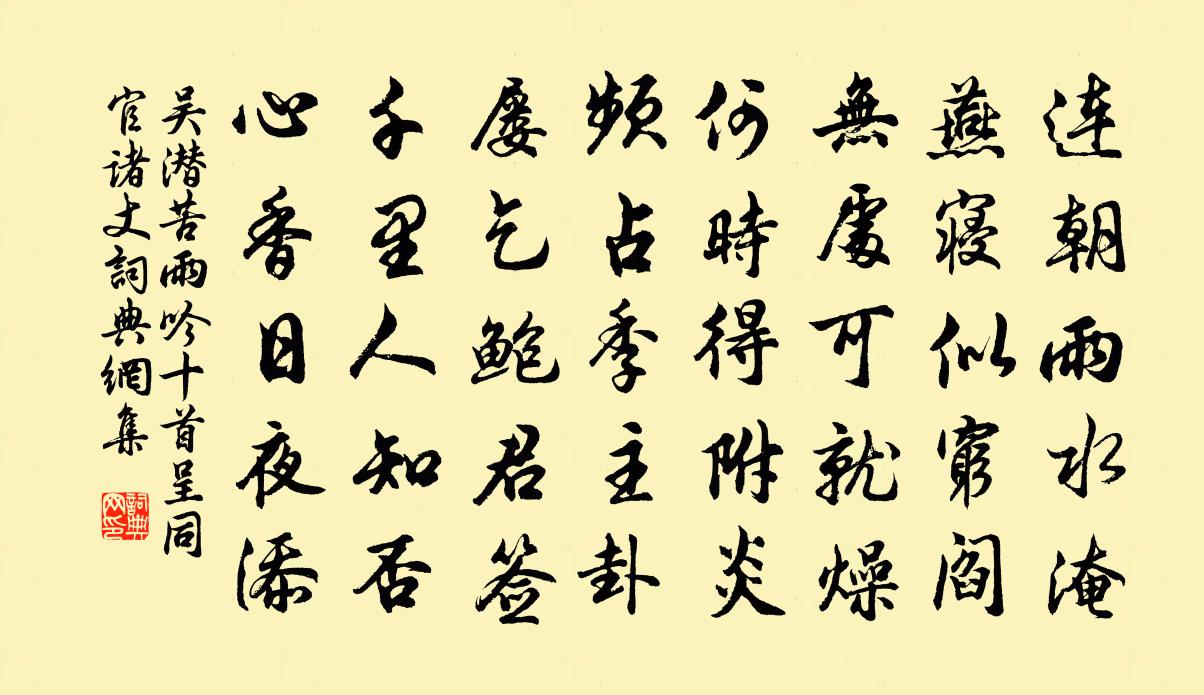 連朝雨水淹
燕寝似窮閻
無處可就燥
何時得附炎
頻占季主卦
屢乞鮑君签
千里人知否
心香日夜添
吴潜苦雨吟十首呈同
官诸丈詞典網集
詞典网印